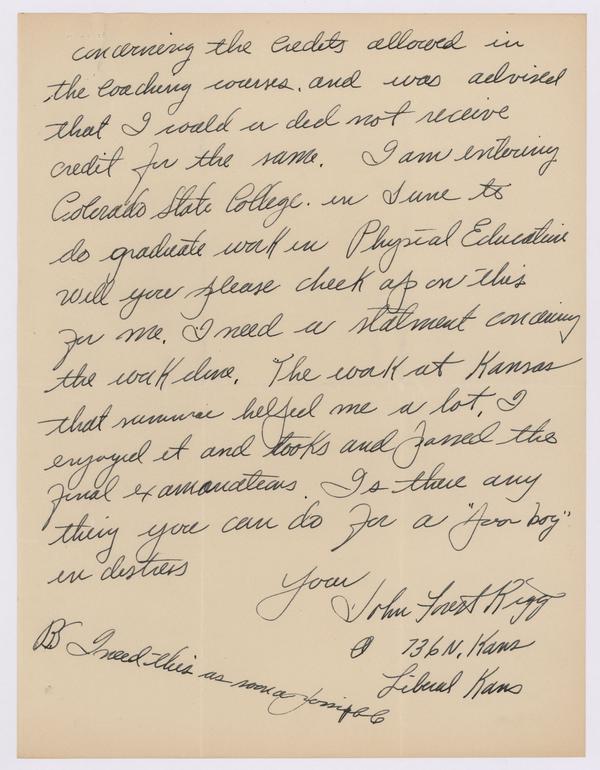 concerning the credits allowed in
the coaching courses. and was advised
that I could or did not receive
credit for the same. I am entering
Colorado State College. in June to
do graduate work in Physical Education
will you please check up on this
for me. I need a statment concerning
the work done. The work at Kansas
that summer helped me a lot, I
enjoyed it and tooks and passed the
final examanations. Is there any
thing you can do for a "poor boy"
in distress
Your
John Forest Rigg
736 N. Kans
Liberal Kans
PS I need this as soon as possible